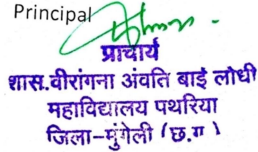 Principal
प्राचार्य
शास.वीरांगना अंवति बाई लोधी
महाविद्यालय पथरिया
जिला-मुंगेली (छ.ग)